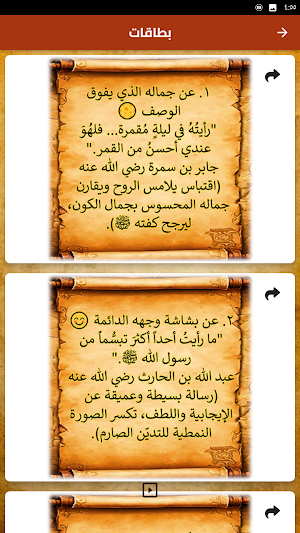 1:00
بطاقات
١. عن جماله الذي يفوق
الوصف
"رأيتُهُ في ليلةٍ مُقمرة... فلهُوَ
عندي أحسنُ من القمر."
جابر بن سمرة رضي الله عنه
(اقتباس يلامس الروح ويقارن
جماله المحسوس بجمال الكون،
ليرجح كفته ﷺ).
٢. عن بشاشة وجهه الدائمة
"ما رأيتُ أحداً أكثرَ تبسُّماً من
رسول الله ﷺ."
عبد الله بن الحارث رضي الله عنه
(رسالة بسيطة وعميقة عن
الإيجابية واللطف، تكسر الصورة
النمطية للتديّن الصارم).